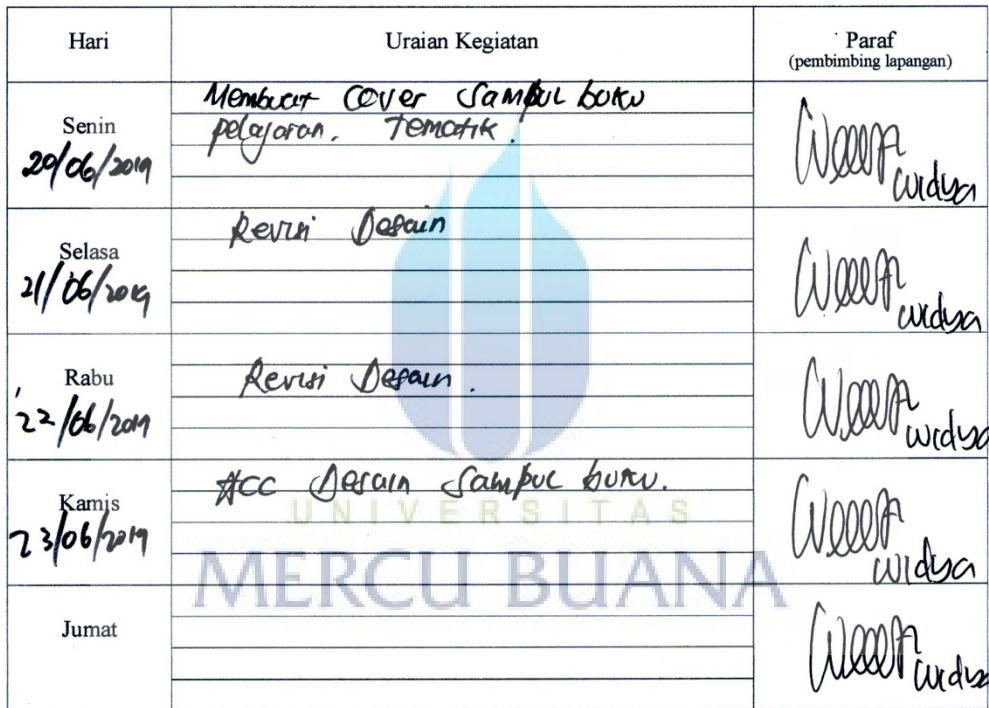 Hari
Uraian Kegiatan
Paraf
(pembimbing lapangan)
Senin
20/06/2019
Membuat Cover Sampul buku
pelajaran. Tematik.
widya
Selasa
21/06/2019
Revisi Desain
widya
Rabu
22/06/2019
Revisi Desain.
widya
Kamis
23/06/2019
ACC Desain Sampul buku.
widya
UNIVERSITAS
MERCU BUANA
Jumat
widya